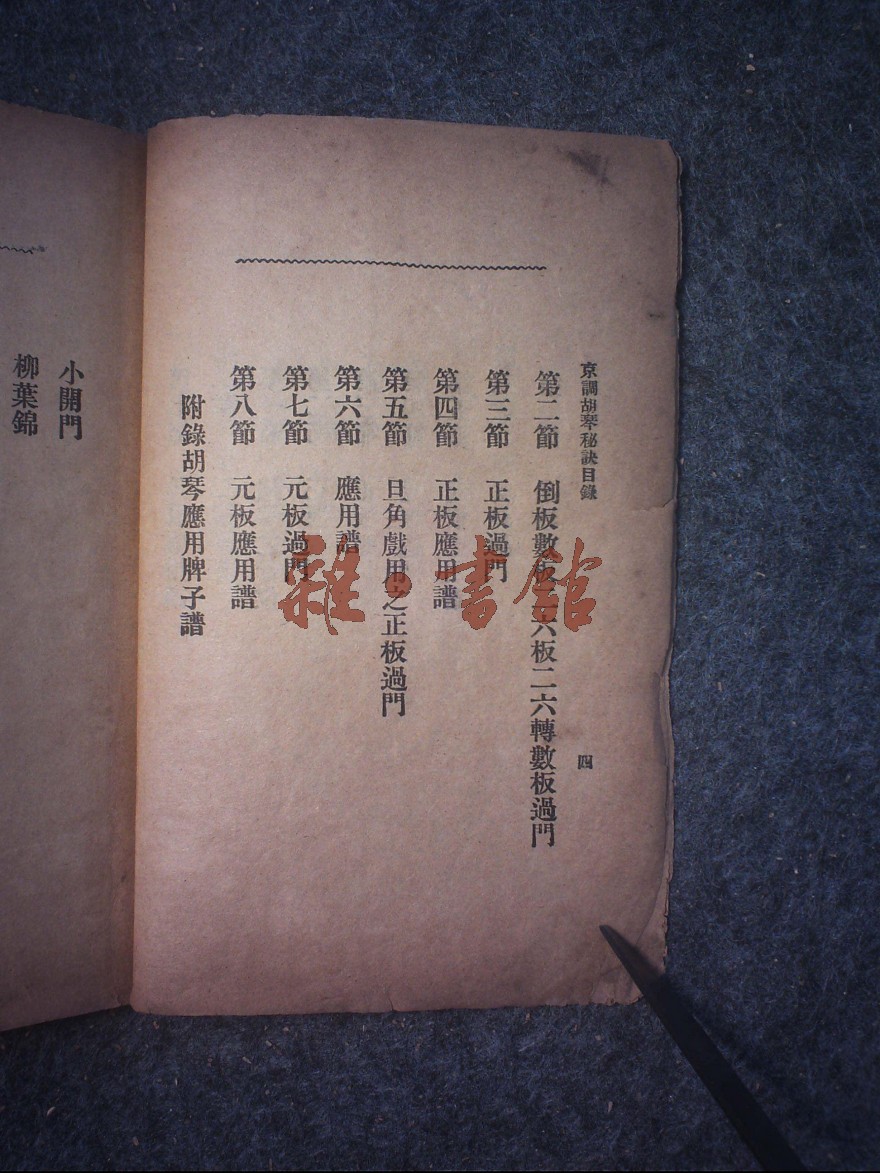 京調胡琴秘訣目錄
四
第二節 倒板數板二六板二六轉數板過門
第三節 正板過門
第四節 正板應用譜
第五節 旦角戲用之正板過門
第六節 應用譜
第七節 元板過門
第八節 元板應用譜
附錄胡琴應用牌子譜
小開門
柳葉錦
雜·書館